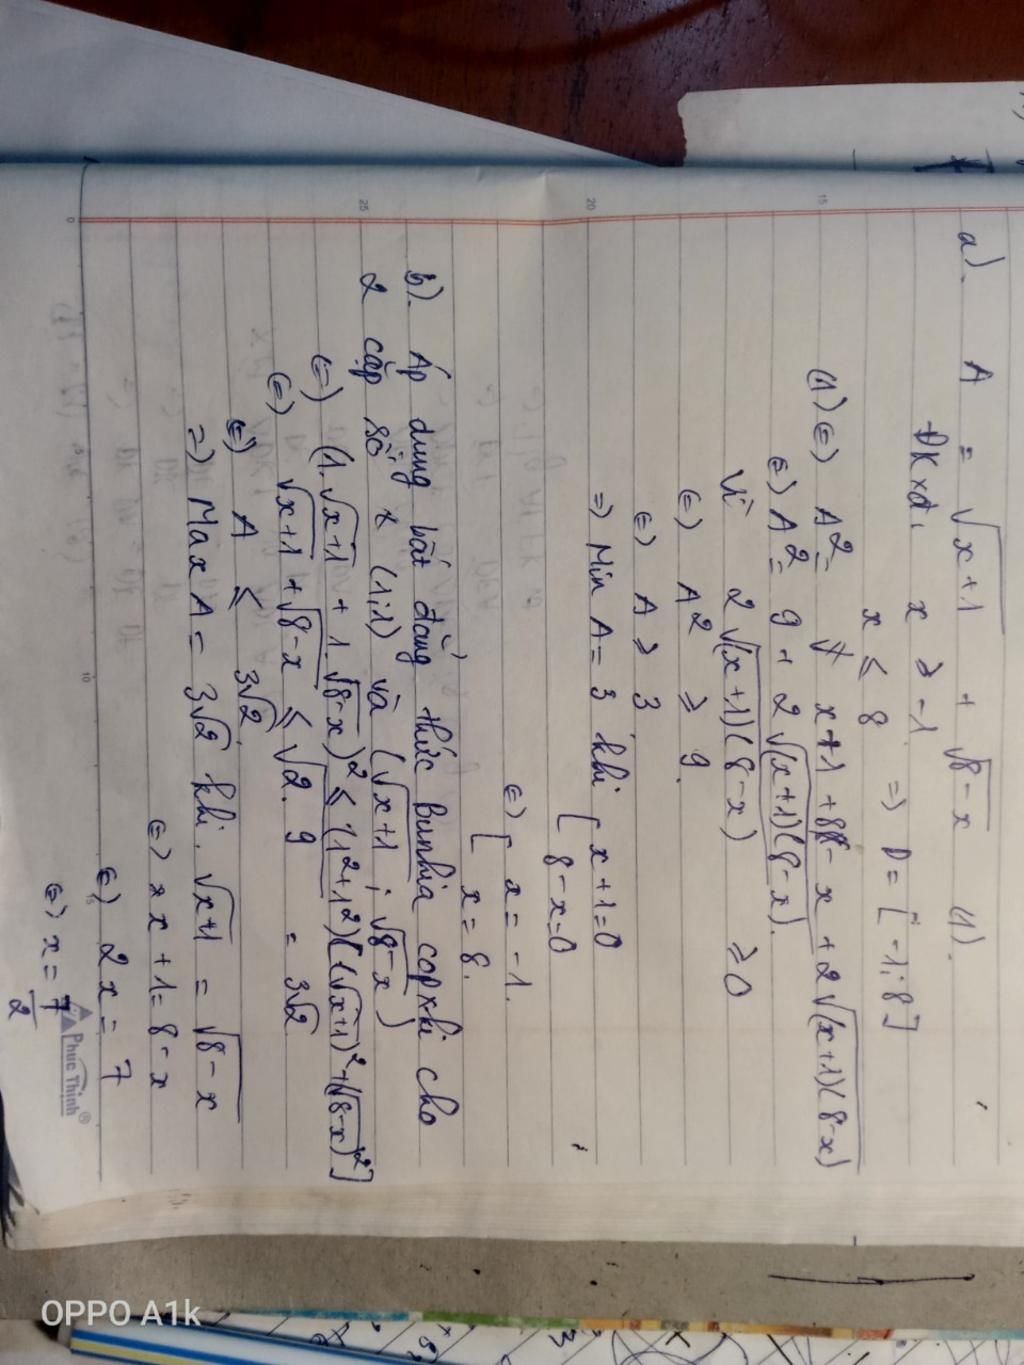 a). A = √(x+1) + √(8-x) (1).
ĐKxđ: x ≥ -1 => D = [-1; 8]
x ≤ 8
(1) (=) A² = x+1+8-x+2√((x+1)(8-x))
(=) A² = 9 + 2√((x+1)(8-x)).
Vì 2√((x+1)(8-x)) ≥ 0
(=) A² ≥ 9.
(=) A ≥ 3
=) Min A = 3 khi [ x+1=0
8-x=0
(=) [ x = -1.
x = 8.
b). Áp dụng bất đẳng thức Bunhia copxki cho
2 cặp số (1;1) và (√(x+1) ; √(8-x))
(=) (1.√(x+1) + 1.√(8-x))² ≤ (1²+1²)[(√(x+1))²+(√(8-x))²]
(=) √(x+1) + √(8-x) ≤ √(2.9) = 3√2
(=) A ≤ 3√2.
=) Max A = 3√2 khi. √(x+1) = √(8-x)
(=) x+1 = 8-x
(=) 2x = 7
(=) x = 7/2
Phúc Thịnh®
15
20
25
0
10
15
OPPO A1k